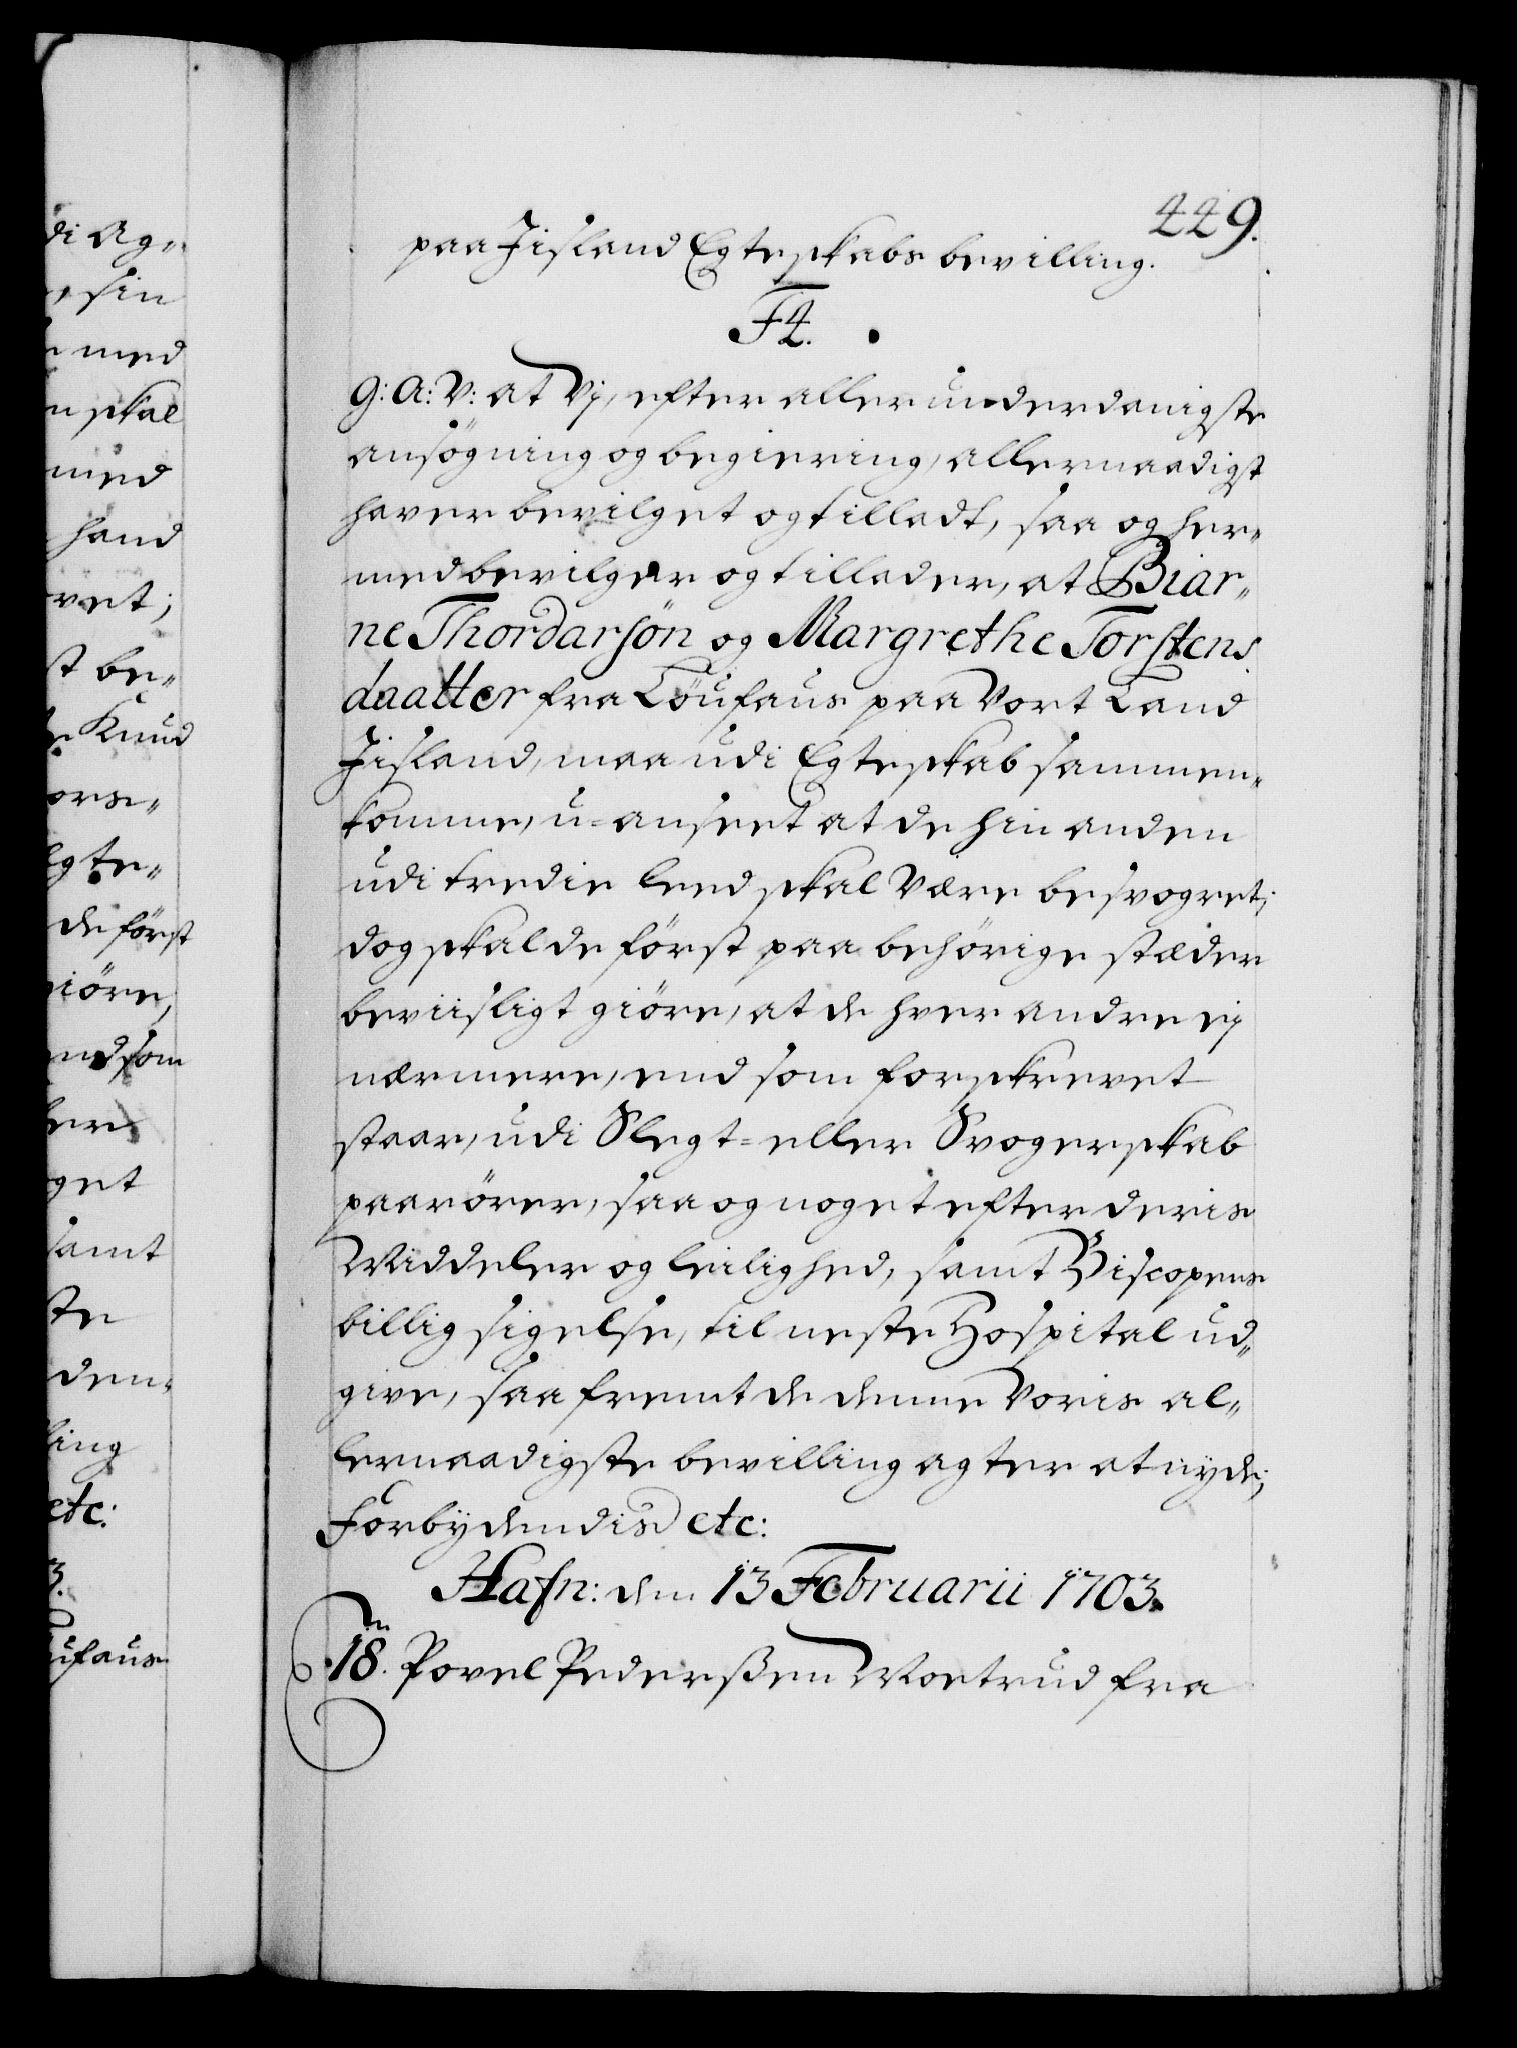 449.
paa Jisland Egteskabs bevilling.
F4.
G: A: V: at Vj, efter allerunderdanigste
ansögning og begiering, allernaadigst
haver bevilget og tilladt, saa og her„
med bevilger og tillader, at Biar„
ne Thordarsön og Margrethe Torstens
daatter fra Löufaus paa Vort Land
Jisland, maa udi Egteskab sammen„
komme, u=anseet at de hin anden
udi tredie leed skal være besvogret;
dog skal de först paa behörige stæder
beviisligt giöre, at de hver andre ej
nærmere, end som forskrevet
staar, udi Slegt= eller Svogerskab
paarörer, saa og noget efter deris
Middeler og leilighed, samt Biscopens
billig sigelse, til neste Hospital ud„
give, saa fremt de denne Voris al„
lernaadigste bevilling agter at nyde;
Forbydendis etc:
Hafn: den 13 Februarii 1703.
18. Povel Pederßen Moetrud fra
di Ag„
sin
med
skal
med
hand
vet;
st be„
Knud
gte„
de först
giöre,
end som
get
samt
ste
den„
ling
etc:
3.
ufaus